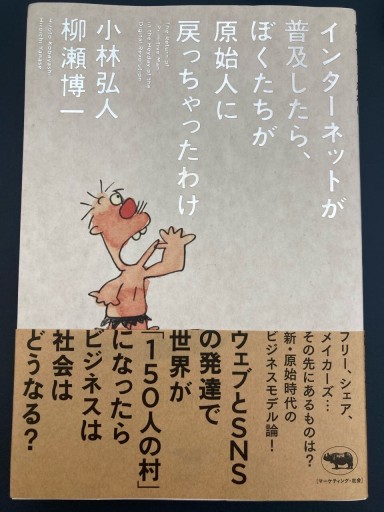 インターネットが
普及したら、
ぼくたちが
原始人に
戻っちゃったわけ
The Return of
Primitive Man
in the Heyday of the
Digital Revolution
小林弘人
柳瀬博一
Hiroto Kobayashi
Hiroichi Yanase
フリー、シェア、
メイカーズ…
その先にあるものは?
新・原始時代の
ビジネスモデル論!
ウェブとSNS
の発達で
世界が
「150人の村」
になったら
ビジネスは
社会は
どうなる?
[マーケティング・社会]